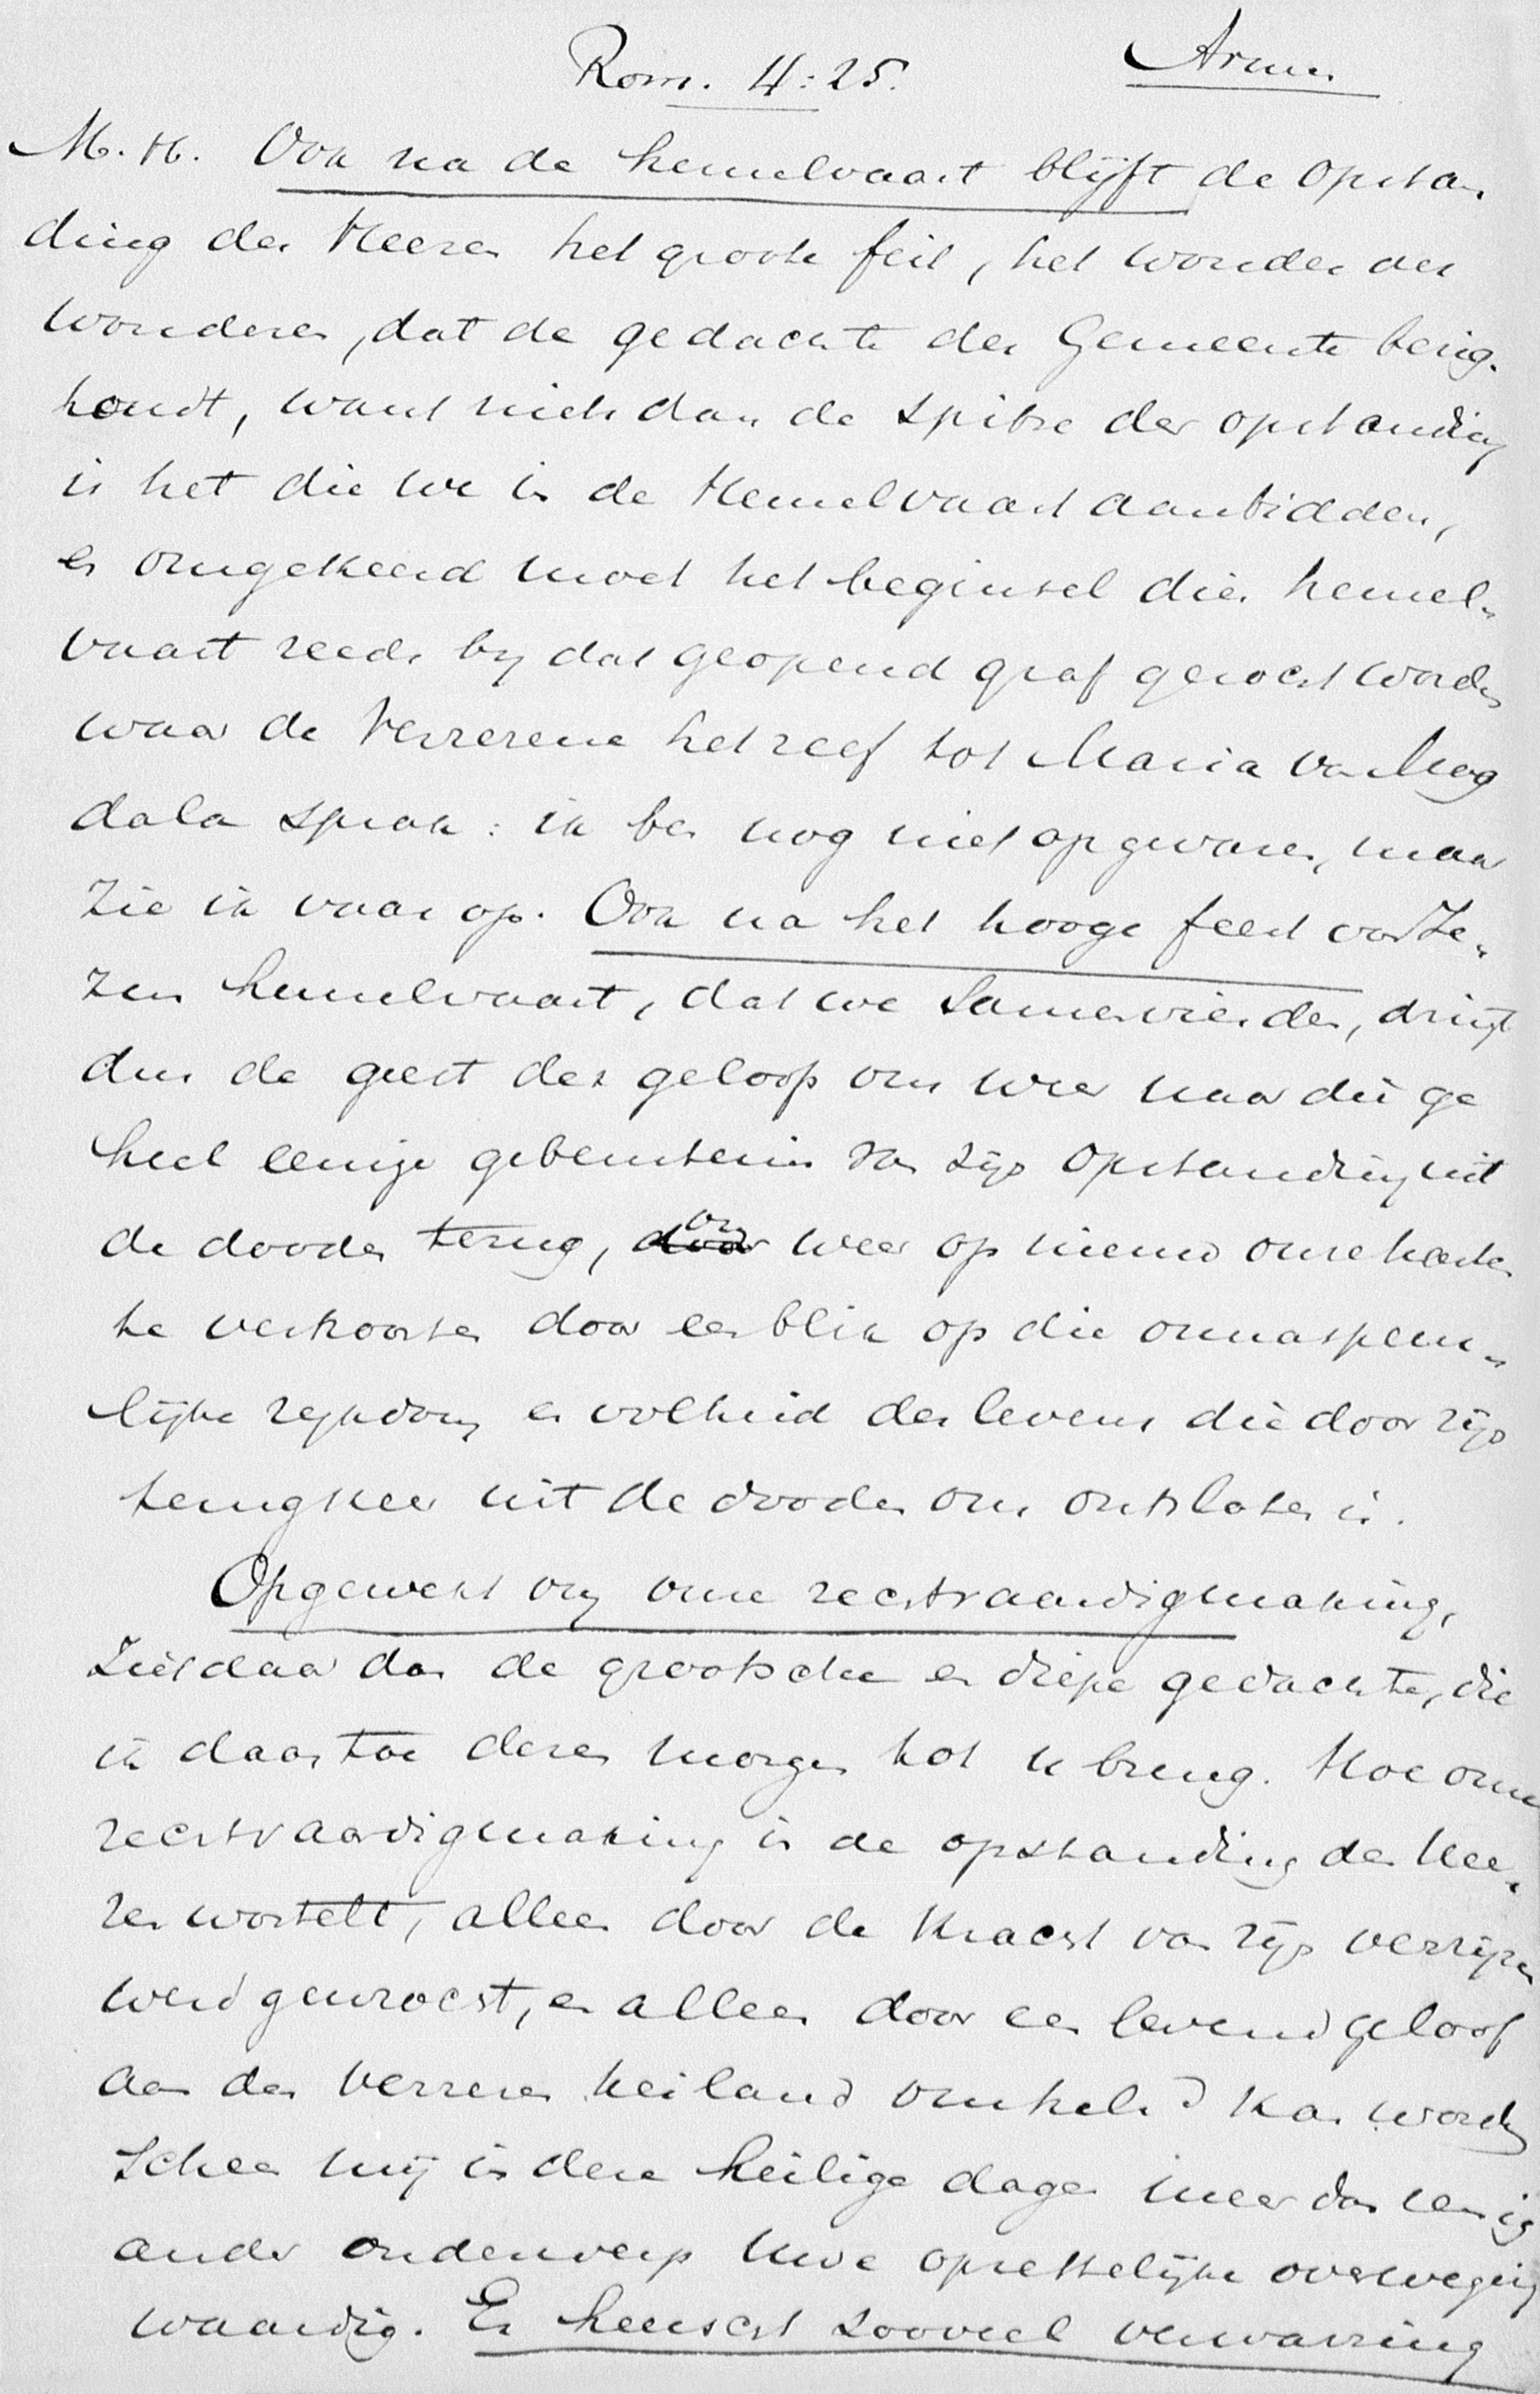 Rom. 4:25. Amen.
M. H. Ook na de hemelvaart blijft de opstan-
ding des Heeren het groote feit, het wonder der
wonderen, dat de gedachte der Gemeente bezig-
houdt, want niets dan de spitse der opstanding
is het die we in de Hemelvaart aanbidden,
en omgekeerd moet het beginsel dier hemel-
vaart reeds by dat geopend graf gezocht worden
waar de Verrezene het zelf tot Maria van Mag
dala sprak: ik ben nog niet opgevaren, maar
zie ik vaar op. Ook na het hooge feest van Je-
zus hemelvaart, dat we samen vierden, dringt
dus de geest des geloofs ons weer naar die ge
heel eenige gebeurtenis van zijn opstanding uit
de dooden terug, om weer op nieuw onze harten
te vertroosten door een blik op die onnaspeur-
lijke rijkdom en volheid des levens die door zijn
terugkeer uit de dooden ons ontsloten is.
Opgewekt om onze rechtvaardigmaking,
Ziet daar dan de grootsche en diepe gedachte, die
ik daartoe dezen morgen tot u breng. Hoe onze
rechtvaardigmaking in de opstanding des Hee-
ren wortelt, alleen door de kracht van zijn verrijzen
werd gewrocht, en alleen door een levend geloof
aan den verrezen heiland omhelsd kan worden
scheen mij in deze heilige dagen meer dan eenig
ander onderwerp uwe opzettelijke overweging
waardig. Er heerscht zooveel verwarring